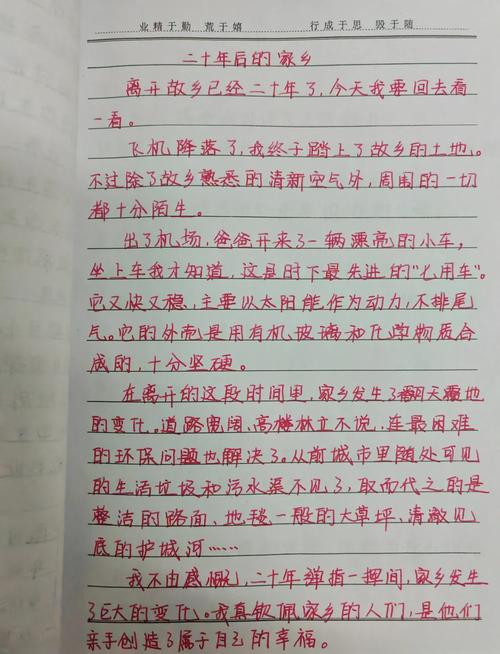 业精于勤 荒于嬉 行成于思 毁于随
二十年后的家乡
离开故乡已经二十年了,今天我要回去看
一看。
飞机降落了,我终于踏上了故乡的土地。
不过除了故乡熟悉的清新空气外,周围的一切
都十分陌生。
出了机场,爸爸开来了一辆漂亮的小车,
坐上车我才知道,这是时下最先进的“七用车”。
它又快又稳,主要以太阳能作为动力,不排尾
气。它的外壳是用有机玻璃和化学物质合
成的,十分坚硬。
在离开的这段时间里,家乡发生了翻天覆地
的变化。道路宽阔、高楼林立不说,连最困难
的环保问题也解决了。从前城市里随处可见
的生活垃圾和污水渠不见了,取而代之的是
整洁的路面、地毯一般的大草坪、清澈见
底的护城河……
我不由感慨,二十年弹指一挥间,家乡发生
了巨大的变化。我真钦佩家乡的人们,是他们
亲手创造了属于自己的幸福。